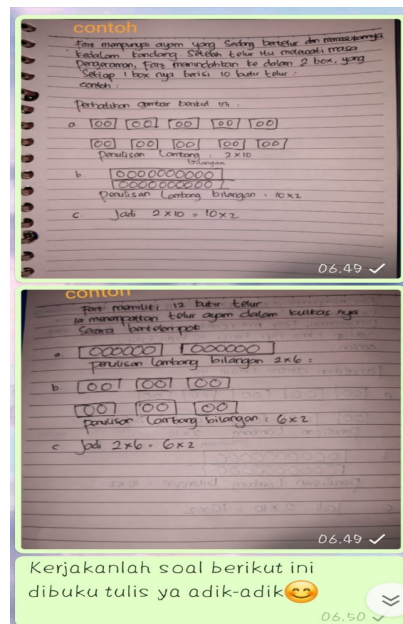 contoh
Farz mempunyai ayam yang sedang bertelur dan
kedalam kandang. Setelah telur itu melewati masa
Pengeraman, Farz memindahkan ke dalam 2 box, yang
Setiap 1 box nya berisi 10 butir telur.
contoh:
Perhatikan gambar berikut ini:
a
Penulisan Lambang bilangan : 2x10
b.
Penulisan Lambang bilangan : 10x2
c Jadi 2x10 = 10x2
06.49
contoh
Farz memiliki 12 butir telur
ia menempatkan telur ayam dalam kulkas nya
Secara berkelompok
a.
penulisan lambang bilangan 2x6 :
b
penulisan Lambang bilangan : 6x2
c Jadi 2x6 = 6x2
06.49
Kerjakanlah soal berikut ini
dibuku tulis ya adik-adik😊
06.50